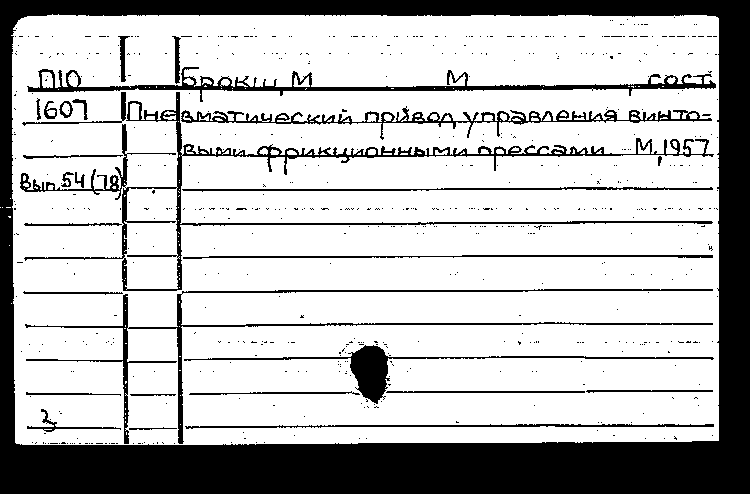 П10 Брокш, М М , сост.
1607 Пневматический привод управления винто=
выми фрикционными прессами М, 1957
Вып. 54 (78)
3